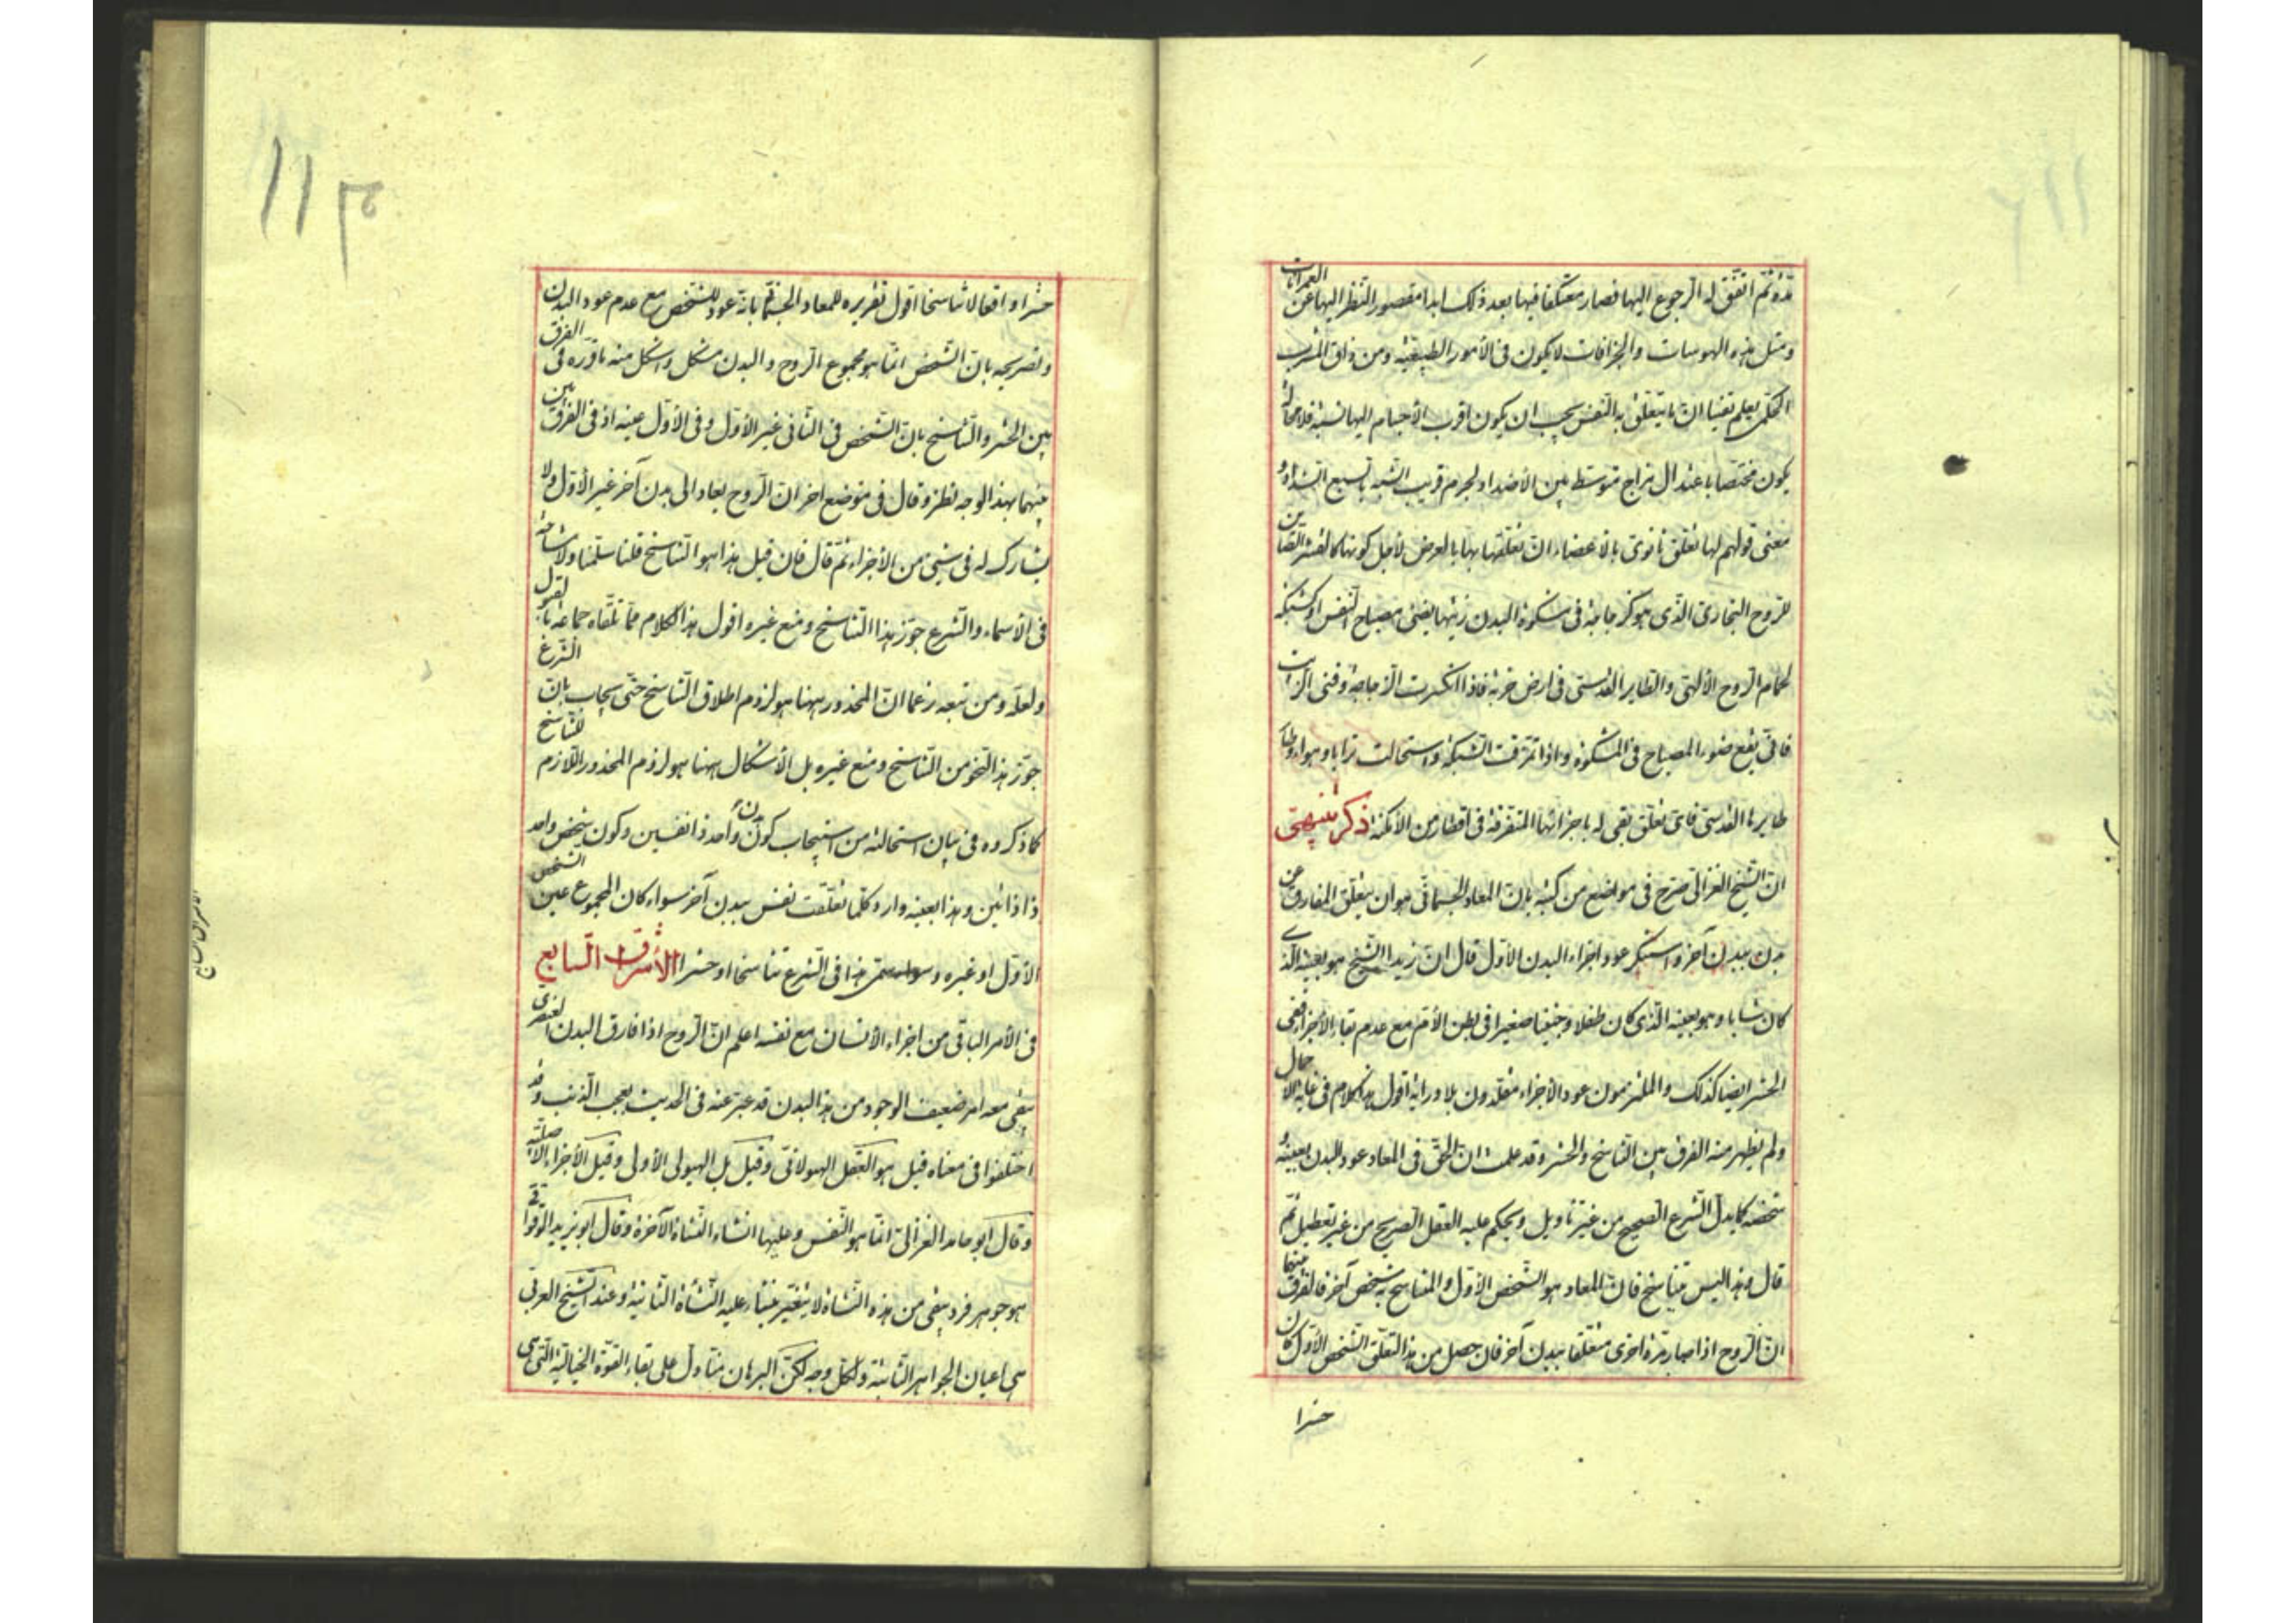 مدة ثم اتفق له الرجوع اليها فصار معتكفا فيها بعد ذلك ابدا مقصور النظر اليها عن العمرانات
ومثل هذه الهوسات والجزافات لا يكون فى الأمور الطبيعية ومن ذاق المشرب
الحكمى يعلم يقينا ان ما يتعلق به النفس يجب ان يكون اقرب الأجسام اليها نسبة فلا محالة
يكون مختصا باعتدال مزاج متوسط بين الأضداد لجرم قريب الشبه بالسبع الشداد و
معنى قولهم لها تعلق ثانوى بالأعضاء ان تعلقها بها بالعرض لأجل كونها كالقشر الصائن
للروح البخارى الذى هو كزجاجة فى مشكوة البدن زيتها يضئ بمصباح النفس او كشبكة
لحمام الروح الالهى والطاير القدسى فى ارض خربة فاذا انكسرت الزجاجة وفنى الزيت
فانى يقع ضوء المصباح فى المشكوة واذا تمزقت الشبكة واستحالت ترابا وهواء وطار
طايرها القدسى فاى تعلق بقى له باجزائها المتفرقة فى اقطار من الأمكنة ذكر تنبيهى
ان الشيخ الغزالى صرح فى مواضع من كتبه بان المعاد الجسمانى هو ان يتعلق المفارق عن
بدن ببدن آخر واستنكر عود اجزاء البدن الأول قال ان زيدا الشيخ هو بعينه الذى
كان شابا وهو بعينه الذى كان طفلا وجنينا صغيرا فى بطن الأم مع عدم بقاء الأجزاء ففى
الحشر ايضا كذلك والملتزمون عود الأجزاء مقلدون بلا دراية اقول هذا الكلام فى غاية الاجمال
ولم يظهر منه الفرق بين التناسخ والحشر وقد علمت ان الحق فى المعاد عود البدن بعينه و
شخصه كما يدل الشرع الصحيح من غير تاويل ويحكم عليه العقل الصريح من غير تعطيل ثم
قال وهذا ليس بتناسخ فان المعاد هو الشخص الأول والمتناسخ به شخص آخر فالفرق بينهما
ان الروح اذا صار مرة اخرى متعلقا ببدن آخر فان حصل من هذا التعلق الشخص الأول كان
حشرا
حشرا واقعا لا تناسخا اقول تقريره للمعاد الجسمانى بانه عود للشخص مع عدم عود البدن
وتصريحه بان الشخص انما هو مجموع الروح والبدن مشكل واشكل منه ما قرره فى الفرق
بين الحشر والتناسخ بان الشخص فى الثانى غير الأول وفى الأول عينه اذ فى الفرق بين
بينهما بهذا الوجه نظر وقال فى موضع اخر ان الروح يعاد الى بدن آخر غير الأول ولا
يشارك له فى شئ من الأجزاء ثم قال فان قيل هذا هو التناسخ قلنا سلمنا ولا مشاحة
فى الأسماء والشرع جوز هذا التناسخ ومنع غيره اقول هذا الكلام مما تلقاه جماعة بالقبول
ولعله ومن تبعه زعما ان المحذور ههنا هو لزوم اطلاق التناسخ حتى يجاب بان الشرع
جوز هذا النحو من التناسخ ومنع غيره بل الاشكال ههنا هو لزوم المحذور اللازم للتناسخ
كما ذكروه فى بيان استحالته من استيجاب كون بدن واحد ذا نفسين وكون شخص واحد
ذا ذاتين وهذا بعينه وارد كلما تعلقت نفس ببدن آخر سواء كان المجموع عين الشخص
الأول او غيره وسواء سمى هذا فى الشرع تناسخا او حشرا الأشراق السابع
فى الأمر الباقى من اجزاء الأنسان مع نفسه اعلم ان الروح اذا فارق البدن العنصرى
يبقى معه امر ضعيف الوجود من هذا البدن قد عبر عنه فى الحديث بعجب الذنب وقد
اختلفوا فى معناه قيل هو العقل الهيولانى وقيل بل الهيولى الأولى وقيل الأجزاء الأصلية
وقال ابو حامد الغزالى انما هو النفس وعليها انشاء النشاة الآخرة وقال ابو يزيد الوقواقى
هو جوهر فرد يبقى من هذه النشاة لا يتغير ينشاء عليه النشاة الثانية وعند الشيخ العربى
هى اعيان الجواهر الثابتة ولكل وجه لكن البرهان منا دل على بقاء القوة الخيالية التى هى
الأشراق السابع